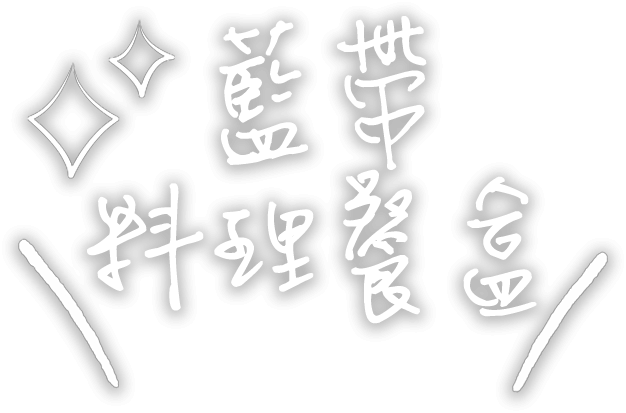 藍帶
料理餐盒